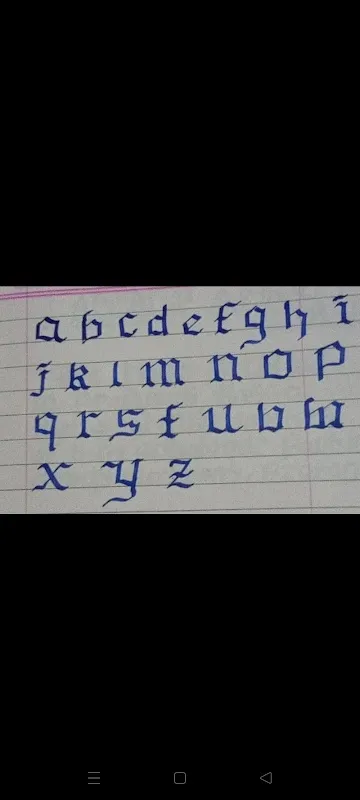 a b c d e f g h i
j k l m n o p
q r s t u v w
x y z